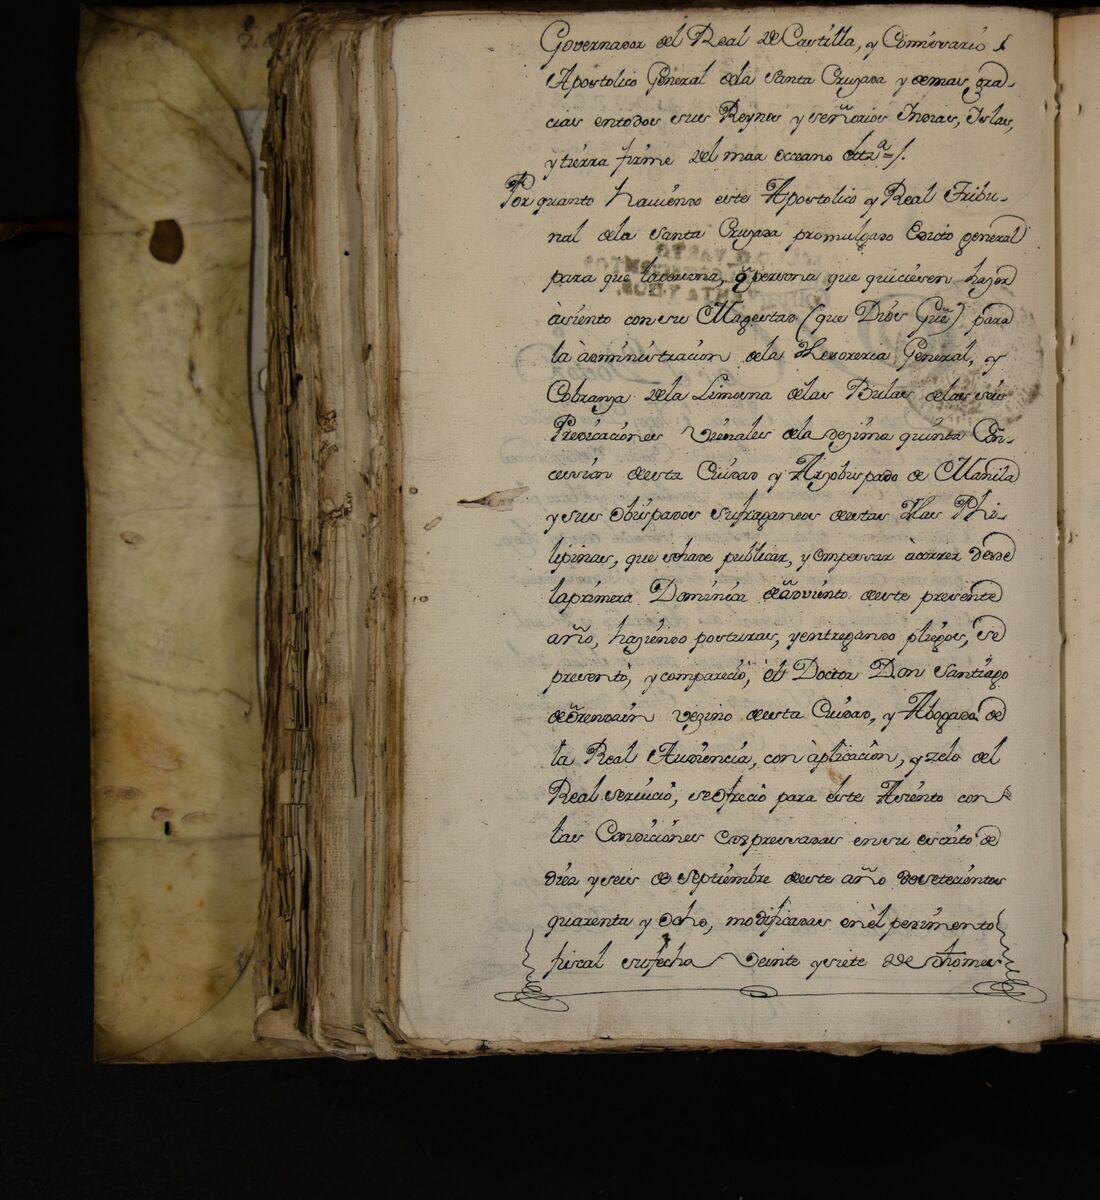 Governador del Real de Castilla, y Comissario
Apostolico General dela Santa Cruzada y demas gra-
cias entodos sus Reynos y señorios Indias, Islas,
y tierra firme del mar oceano ettrª = /.
Por quanto haviendo este Apostolico y Real Tribu-
nal dela Santa Cruzada promulgado Edicto general
para que persona que quiciesen hazer
àsiento con su Magestad (que Dios Gu͞e) para
la àdministracion dela Thesoreria General, y
Cobranza dela Limosna delas Bulas delas seis
Predicaciones Vienales dela dezima quinta Con-
cesion deesta Ciudad y Arzobispado de Manila
y sus Obispados sufraganeos destas Yslas Phi-
lipinas, que sehade publicar, y empessar àcorrer desde
laprimera Dominica de adviento deeste presente
año, haziendo posturas, y entregando pliegos, se
presentò, y compareciò, èl Doctor Don Santiago
de Orendain vezino deesta Ciudad, y Abogado de
la Real Audiencia, con àplicacion, y zelo del
Real servicio, se ofreciò para èste Asiento con
las Condiciones expressadas en su escrito de
diez y seis de septiembre deeste año desetecientos
quarenta y Ocho, modificadas en èl pedimento
fiscal sufecha Veinte y siete de